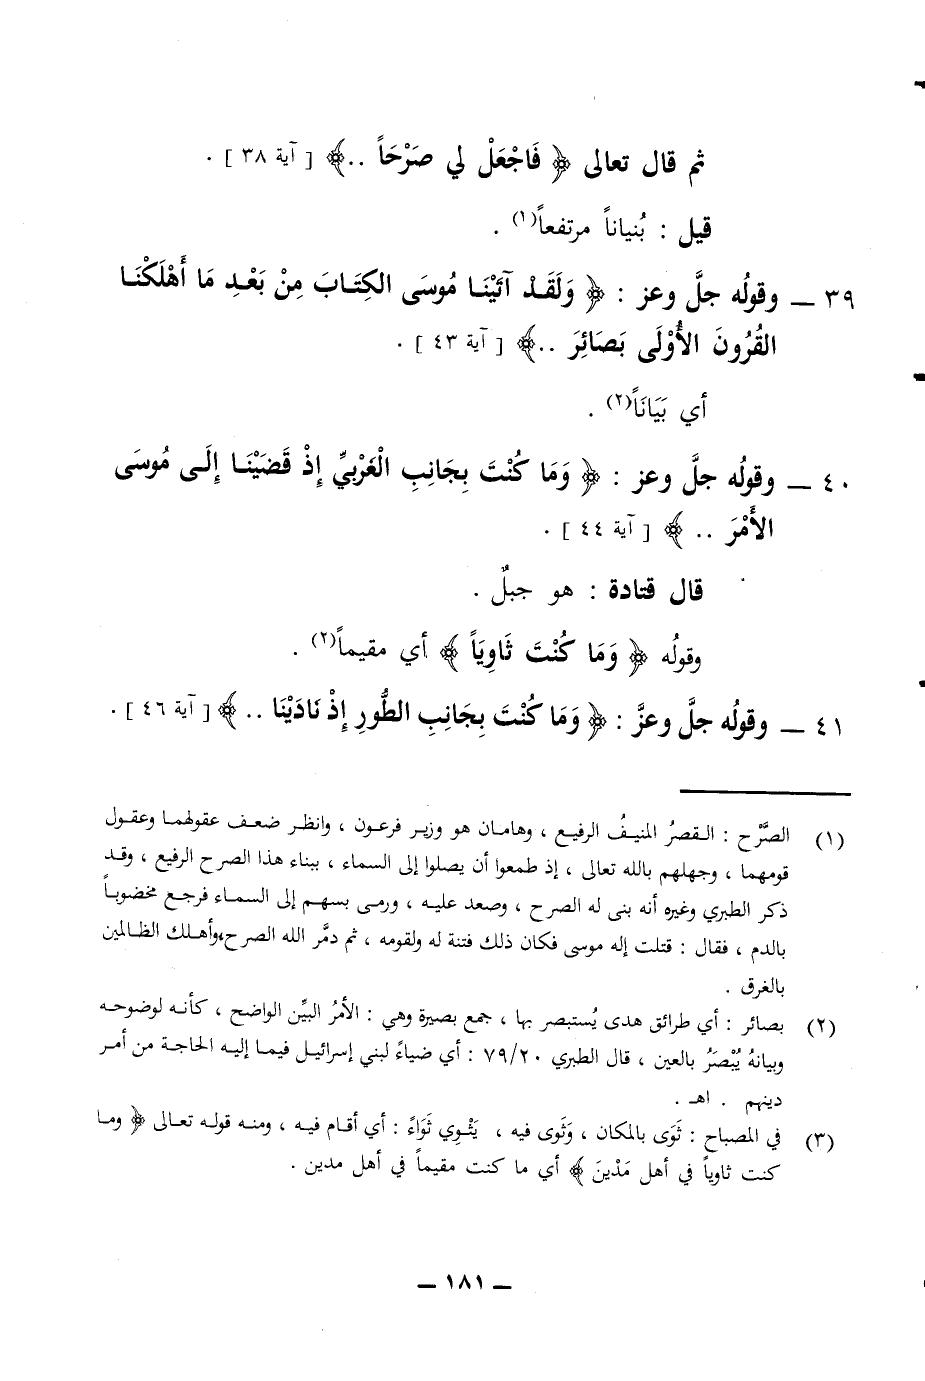 ثم قال تعالى ﴿ فَاجْعَلْ لي صَرْحَاً ..﴾ [ آية ٣٨ ] .
قيل : بُنياناً مرتفعاً(١) .
٣٩ ــ وقولُه جلَّ وعز : ﴿ وَلَقَدْ آتَيْنَا مُوسَى الكِتَابَ مِنْ بَعْدِ مَا أَهْلَكْنَا
القُرُونَ الأُوْلَى بَصَائِرَ ..﴾ [ آية ٤٣ ] .
أي بَيَانَاً(٢) .
٤٠ ــ وقولُه جلَّ وعز : ﴿ وَمَا كُنْتَ بِجَانِبِ الْغَرْبيِّ إِذْ قَضَيْنَا إِلَى مُوسَى
الأَمْرَ .. ﴾ [ آية ٤٤ ] .
قال قتادة : هو جبلٌ .
وقولُه ﴿ وَمَا كُنْتَ ثَاوِيَاً ﴾ أي مقيماً(٢) .
٤١ ــ وقولُه جلَّ وعزَّ : ﴿ وَمَا كُنْتَ بِجَانِبِ الطُّورِ إِذْ نَادَيْنَا .. ﴾ [ آية ٤٦ ] .
(١) الصَّرْح : القصرُ المنيفُ الرفيع ، وهامان هو وزير فرعون ، وانظر ضعف عقولهما وعقول
قومهما ، وجهلهم بالله تعالى ، إذ طمعوا أن يصلوا إلى السماء ، ببناء هذا الصرح الرفيع ، وقد
ذكر الطبري وغيره أنه بنى له الصرح ، وصعد عليه ، ورمى بسهم إلى السماء فرجع مخضوباً
بالدم ، فقال : قتلت إله موسى فكان ذلك فتنة له ولقومه ، ثم دمَّر الله الصرح،وأهلك الظالمين
بالغرق .
(٢) بصائر : أي طرائق هدى يُستبصر بها ، جمع بصيرة وهي : الأمرُ البيِّن الواضح ، كأنه لوضوحه
وبيانهُ يُبْصَرُ بالعين ، قال الطبري ٧٩/٢٠ : أي ضياءً لبني إسرائيل فيما إليه الحاجة من أمر
دينهم . اهـ .
(٣) في المصباح : ثَوَى بالمكان ، وَثَوى فيه ، يَثْوِي ثَوَاءً : أي أقام فيه ، ومنه قوله تعالى ﴿ وما
كنت ثاوياً في أهل مَدْينَ ﴾ أي ما كنت مقيماً في أهل مدين .
ــ ١٨١ ــ